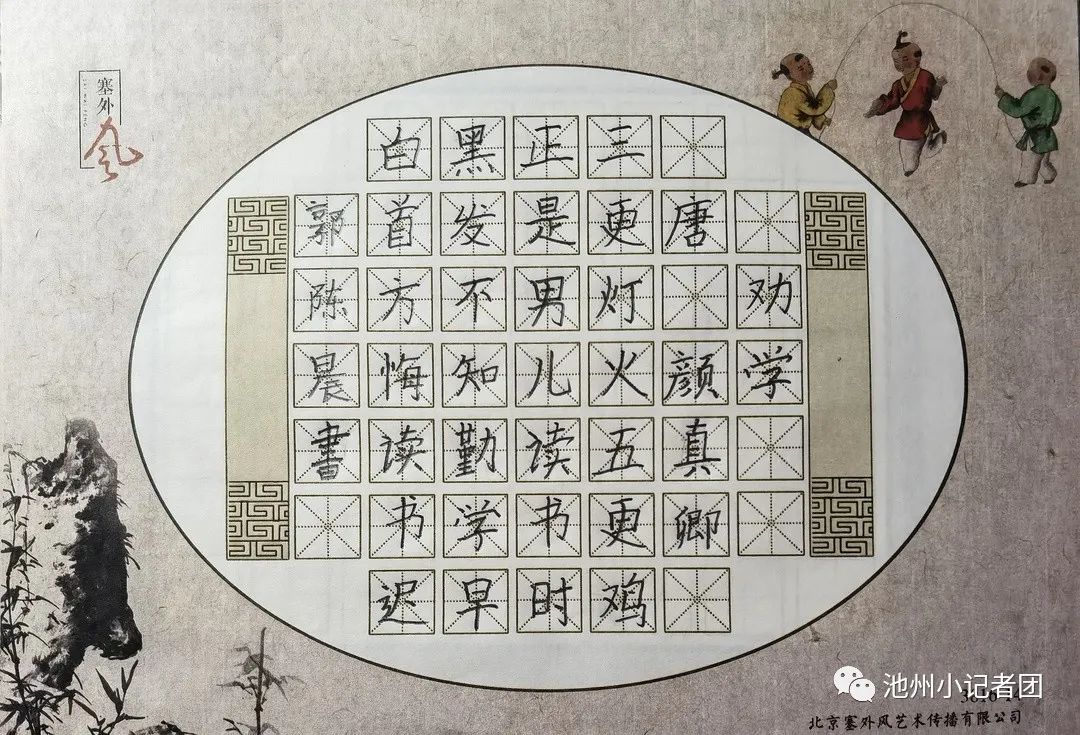 劝学
唐 颜真卿
三更灯火五更鸡
正是男儿读书时
黑发不知勤学早
白首方悔读书迟
郭陈晨書
塞外风
池州小记者团
北京塞外风艺术传播有限公司